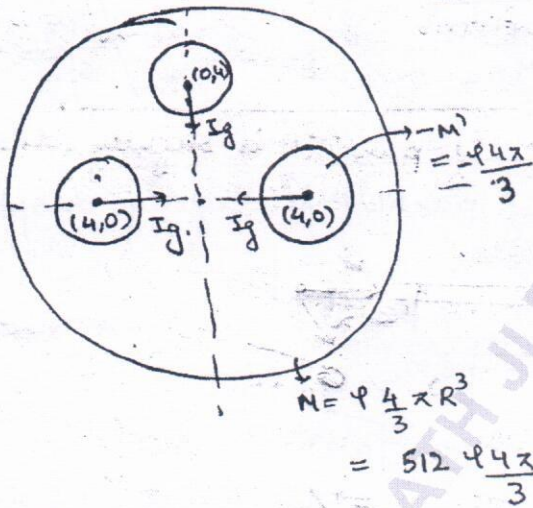 (0,4)
Ig
→ -M'
= -ρ4π/3
(4,0)
Ig.
Ig
(4,0)
M = ρ 4/3 π R³
= 512 ρ4π/3
ATH JI